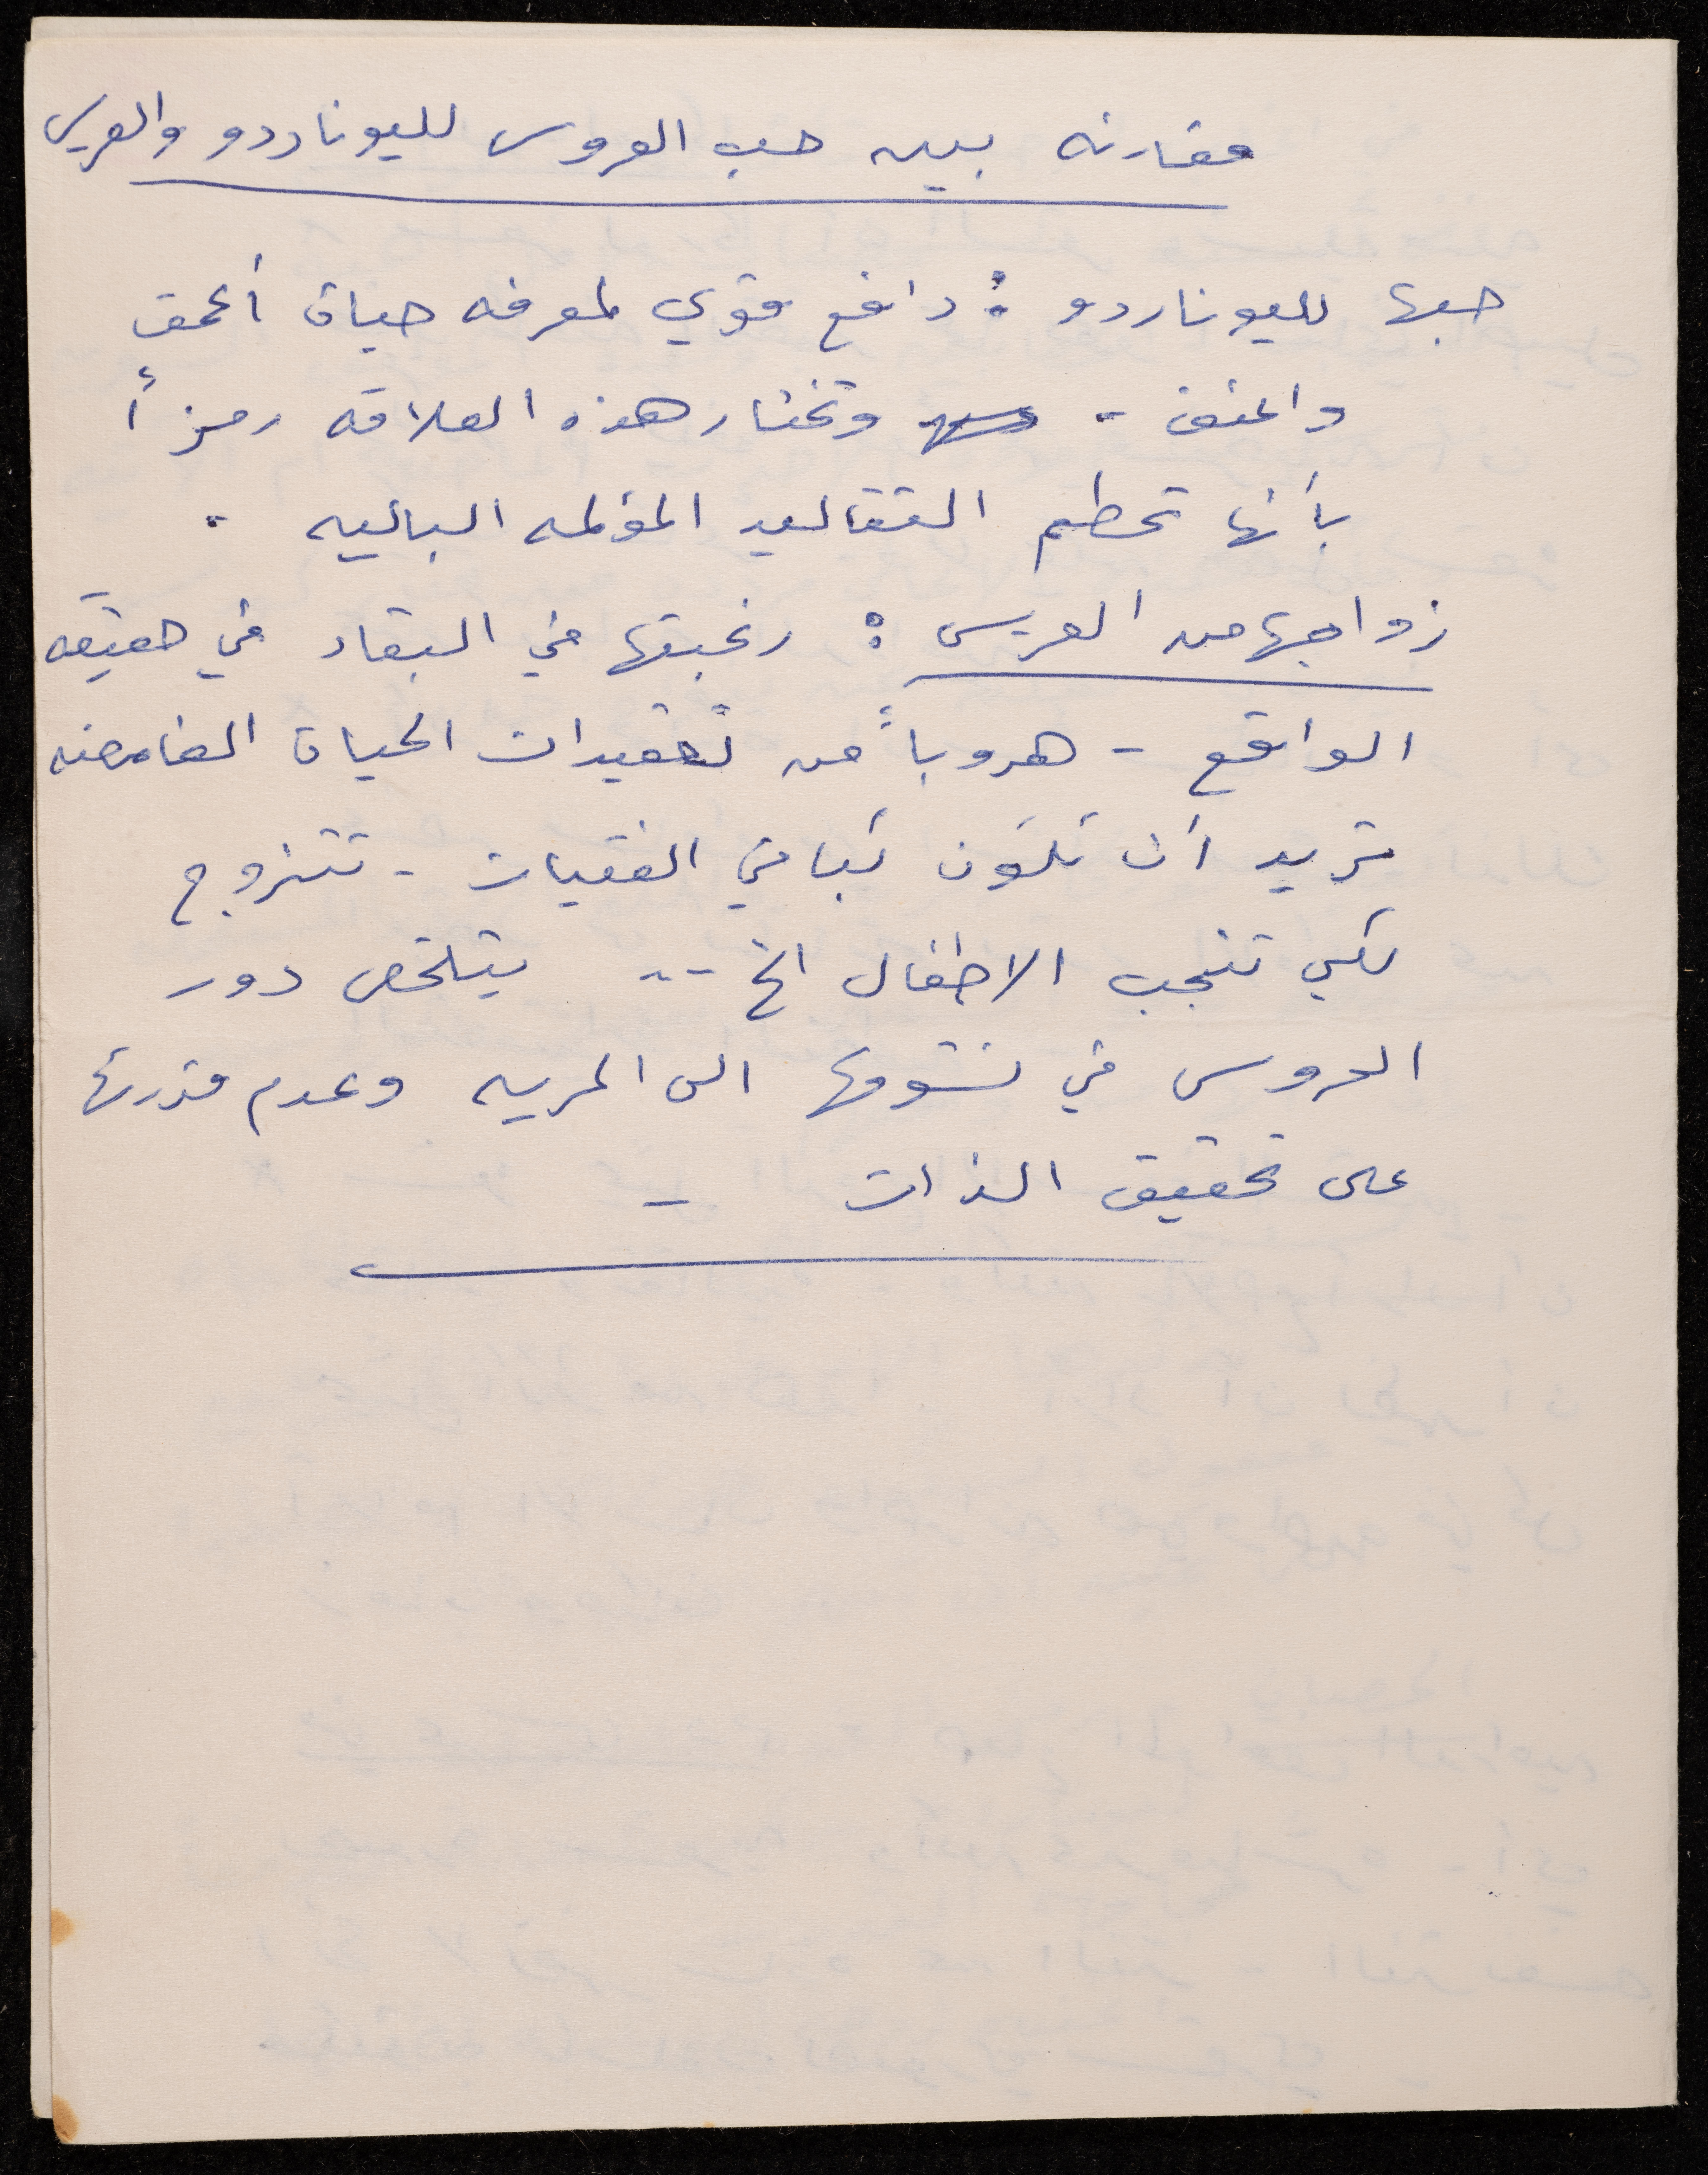 مقارنه بين حب العروس لليوناردو والعريس
حبها لليوناردو : دافع قوي لمعرفه حياة أعمق
واعنف - وتختار هذه العلاقه رمزاً
بأنها تحطم التقاليد المؤلمه الباليه .
زواجها من العريس : رغبتها في البقاء في حقيقه
الواقع - هروباً من تعقيدات الحياة الغامضه
تريد أن تكون كباقي الفتيات - تتزوج
لكي تنجب الاطفال الخ -- يتلخص دور
العروس في تشوقها الى الحريه وعدم قدرتها
على تحقيق الذات -